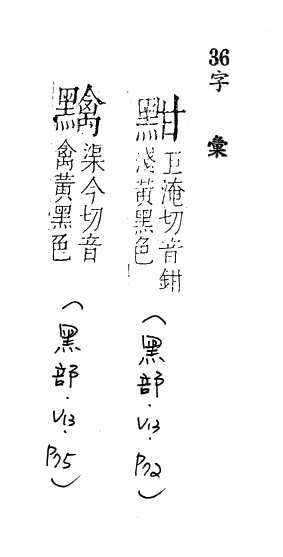 36字彙
黚
巨淹切音鉗
淺黃黑色
(黑部.V13.P72)
渠今切音
禽黃黑色
(黑部.V13.P75)